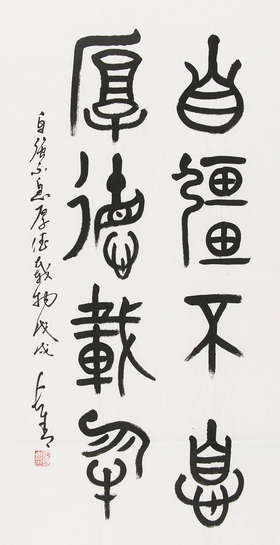 自彊不息
厚德載物
自强不息厚德載物戊戌